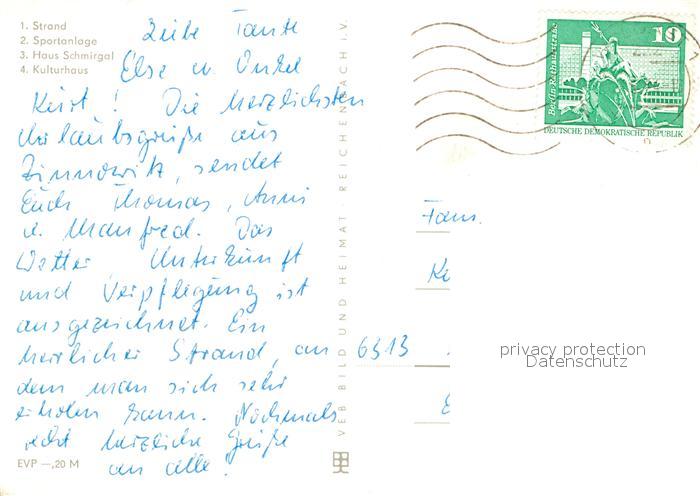 1. Strand
2. Sportanlage
3. Haus Schmirgal
4. Kulturhaus
Liebe Tante
Else u. Onkel
Kurt! Die herzlichsten
Urlaubsgrüße aus
Zinnowitz, sendet
Euch Thomas, Anni
u. Manfred. Das
Wetter Unterkunft
und Verpflegung ist
ausgezeichnet. Ein
herrlicher Strand, an
dem man sich sehr
erholen kann. Nochmals
recht herzliche Grüße
an alle!
EVP —,20 M
VEB BILD UND HEIMAT · REICHENBACH I. V.
Berlin-Rathausstraße
10
DEUTSCHE DEMOKRATISCHE REPUBLIK
Fam.
6313
privacy protection
Datenschutz